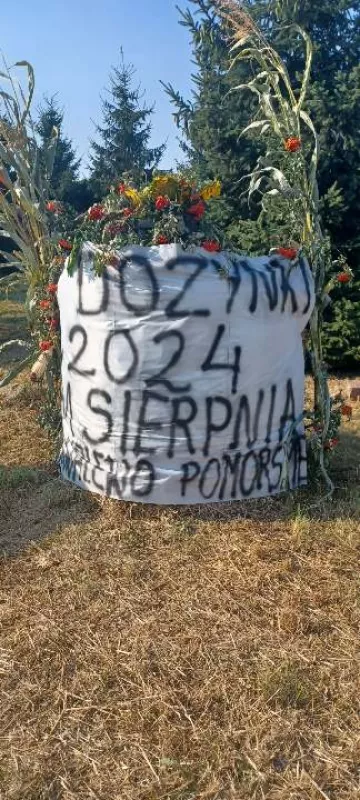 DOŻYNKI
2024
SIERPNIA
POMORSKIE